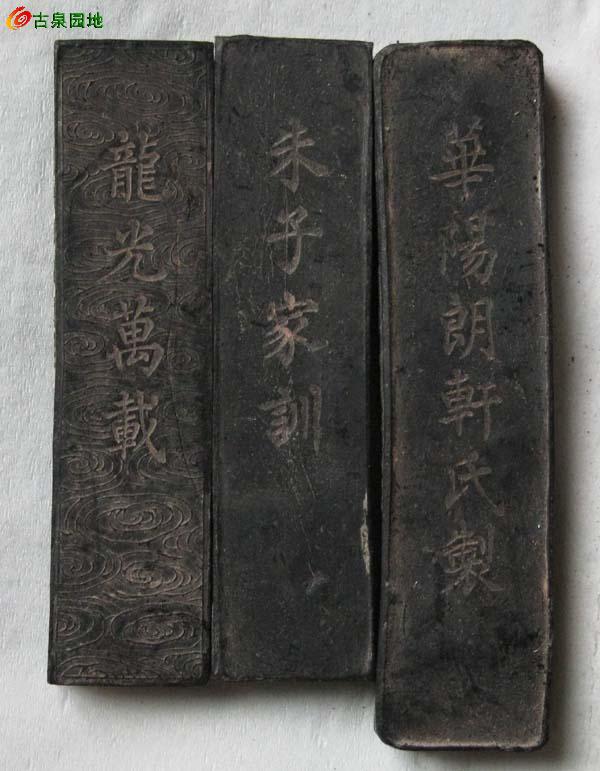 古泉园地
龍光萬載
朱子家訓
華陽朗軒氏製